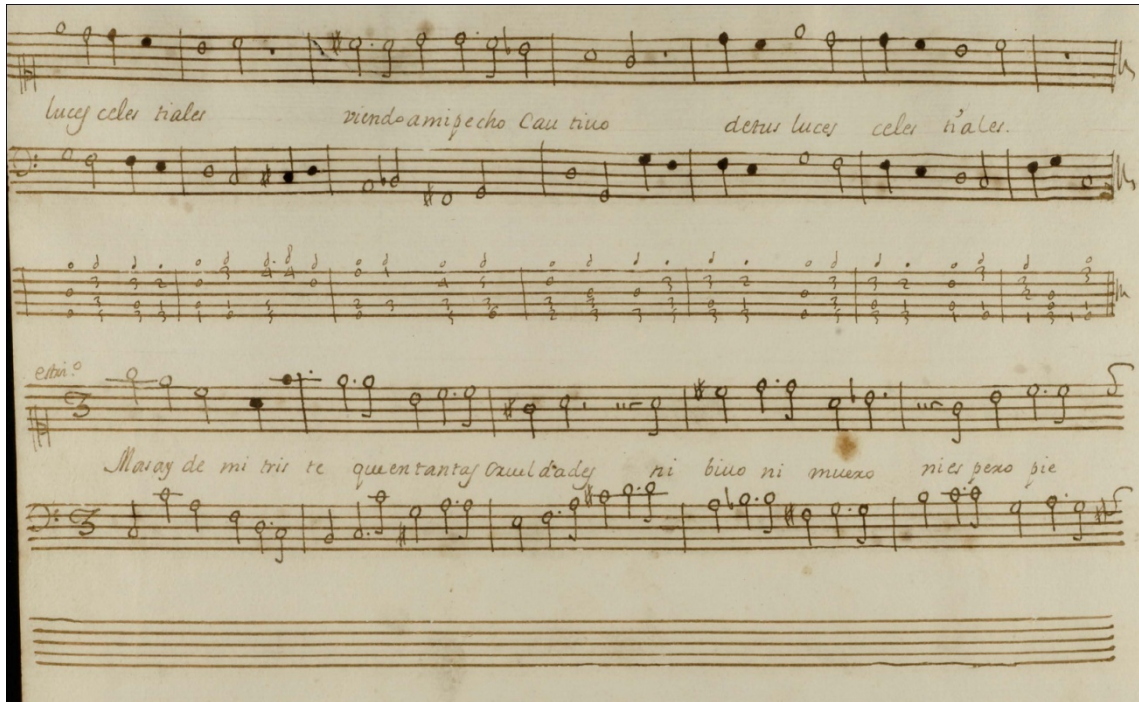 luces celes tiales viendo ami pecho Cau tiuo detus luces celes tiales.
estri.º
Mas ay de mi tris te que en tantas Crueldades ni biuo ni muero ni es pero pie